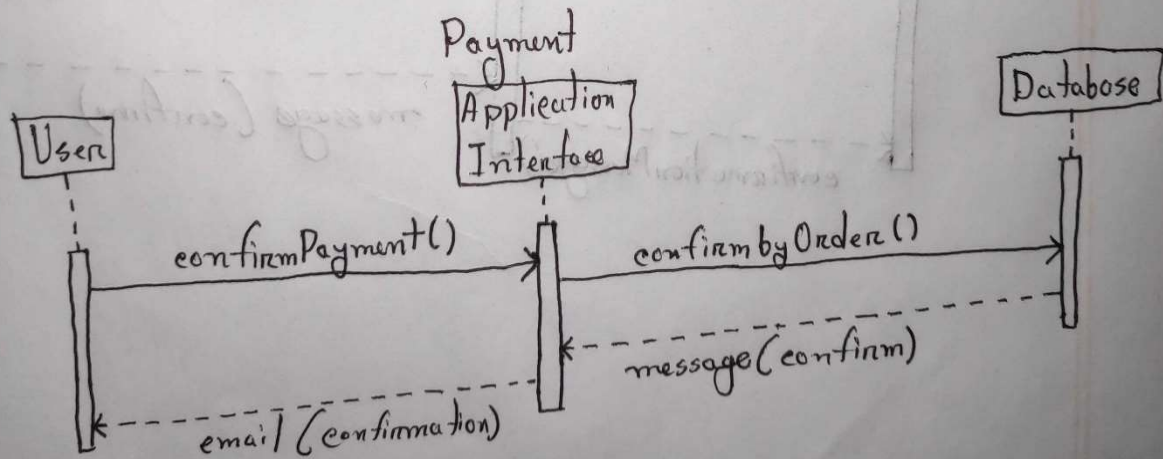 Payment
Application
Interface
Database
User
confirmPayment()
confirmbyOrder()
message(confirm)
email(confirmation)